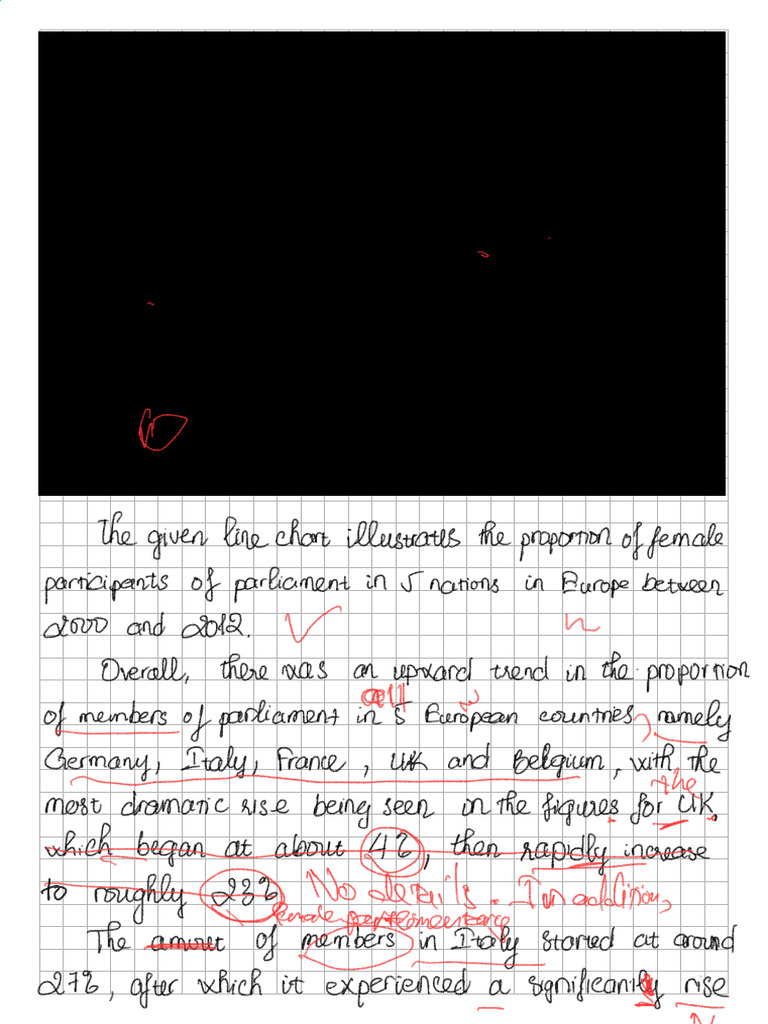 The given line chart illustrates the proportion of female
participants of parliament in 5 nations in Europe between
2000 and 2012.
Overall, there was an upward trend in the proportion
all
of members of parliament in 5 European countries, namely
Germany, Italy, France, UK and Belgium, with the
the
most dramatic rise being seen in the figures for UK,
which began at about 4%, then rapidly increase
to roughly 23% No details. In addition,
female
The amout of members in Italy started at around
27%, after which it experienced a significantly rise
N